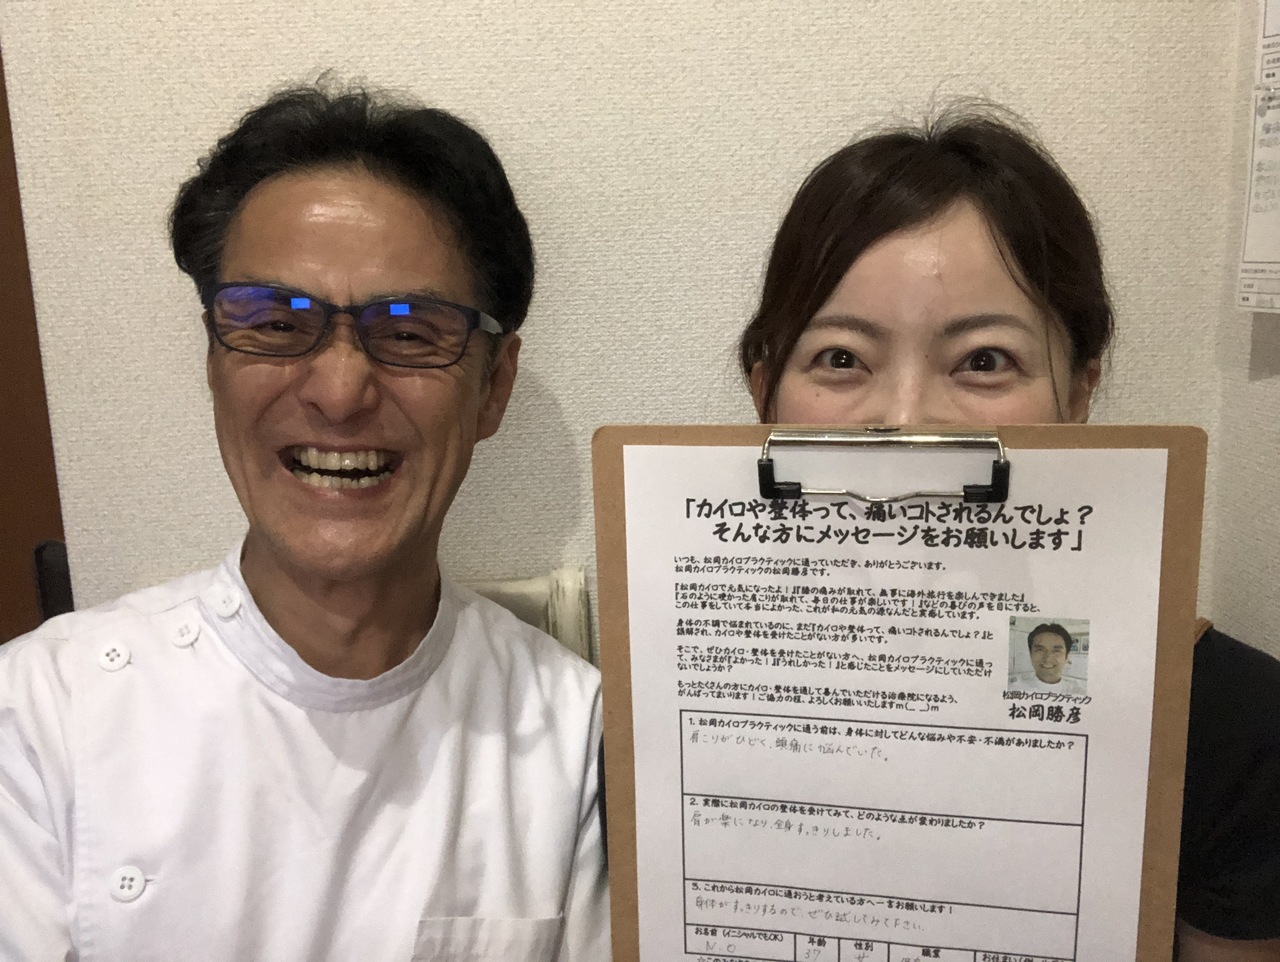 「カイロや整体って、痛いコトされるんでしょ？
そんな方にメッセージをお願いします」
いつも、松岡カイロプラクティックに通っていただき、ありがとうございます。
松岡カイロプラクティックの松岡勝彦です。
『松岡カイロで元気になったよ！』『膝の痛みが取れて、無事に海外旅行を楽しんできました』
『石のように硬かった肩こりが取れて、毎日の仕事が楽しいです！』などの喜びの声を耳にすると、
この仕事をしていて本当によかった、これが私の元気の源なんだと実感しています。
身体の不調で悩まれているのに、まだ『カイロや整体って、痛いコトされるんでしょ？』と
誤解され、カイロや整体を受けたことがない方が多いです。
そこで、ぜひカイロ・整体を受けたことがない方へ、松岡カイロプラクティックに通っ
て、みなさまが『よかった！』『うれしかった！』と感じたことをメッセージにしていただけ
ないでしょうか？
もっとたくさんの方にカイロ・整体を通して喜んでいただける治療院になるよう、
がんばってまいります！ご協力の程、よろしくお願いいたしますm(_ _)m
松岡カイロプラクティック
松岡勝彦
1. 松岡カイロプラクティックに通う前は、身体に対してどんな悩みや不安・不満がありましたか？
肩こりがひどく、頭痛に悩んでいた。
2. 実際に松岡カイロの整体を受けてみて、どのような点が変わりましたか？
肩が楽になり、全身すっきりしました。
3. これから松岡カイロに通おうと考えている方へ一言お願いします！
身体がすっきりするので、ぜひ試してみて下さい。
お名前（イニシャルでもOK） 年齢 性別 職業
N.O 37 女